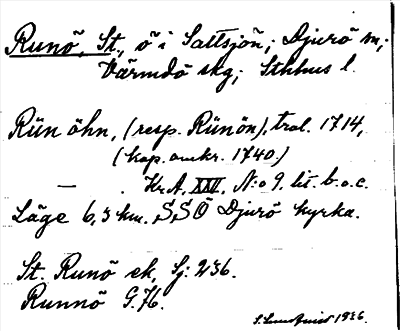 Runö, St., ö i Saltsjön; Djurö sn;
Värmdö skg; Sthlms l.
Rün öhn, (resp. Rünön), trol. 1714,
(kop. omkr. 1740.)
— . Kr.A, XXV, N:o 9. lit. b. o. c.
Läge 6,3 km. SSÖ Djurö kyrka.
St. Runö ek, Sj: 236.
Runnö G.76.
S. Lundquist 1936.